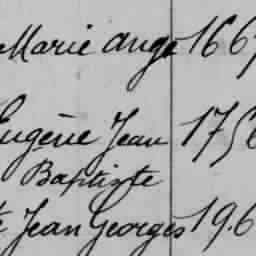 Marie Ange 166
Eugène Jean 175
Baptiste
Jean Georges 19.6